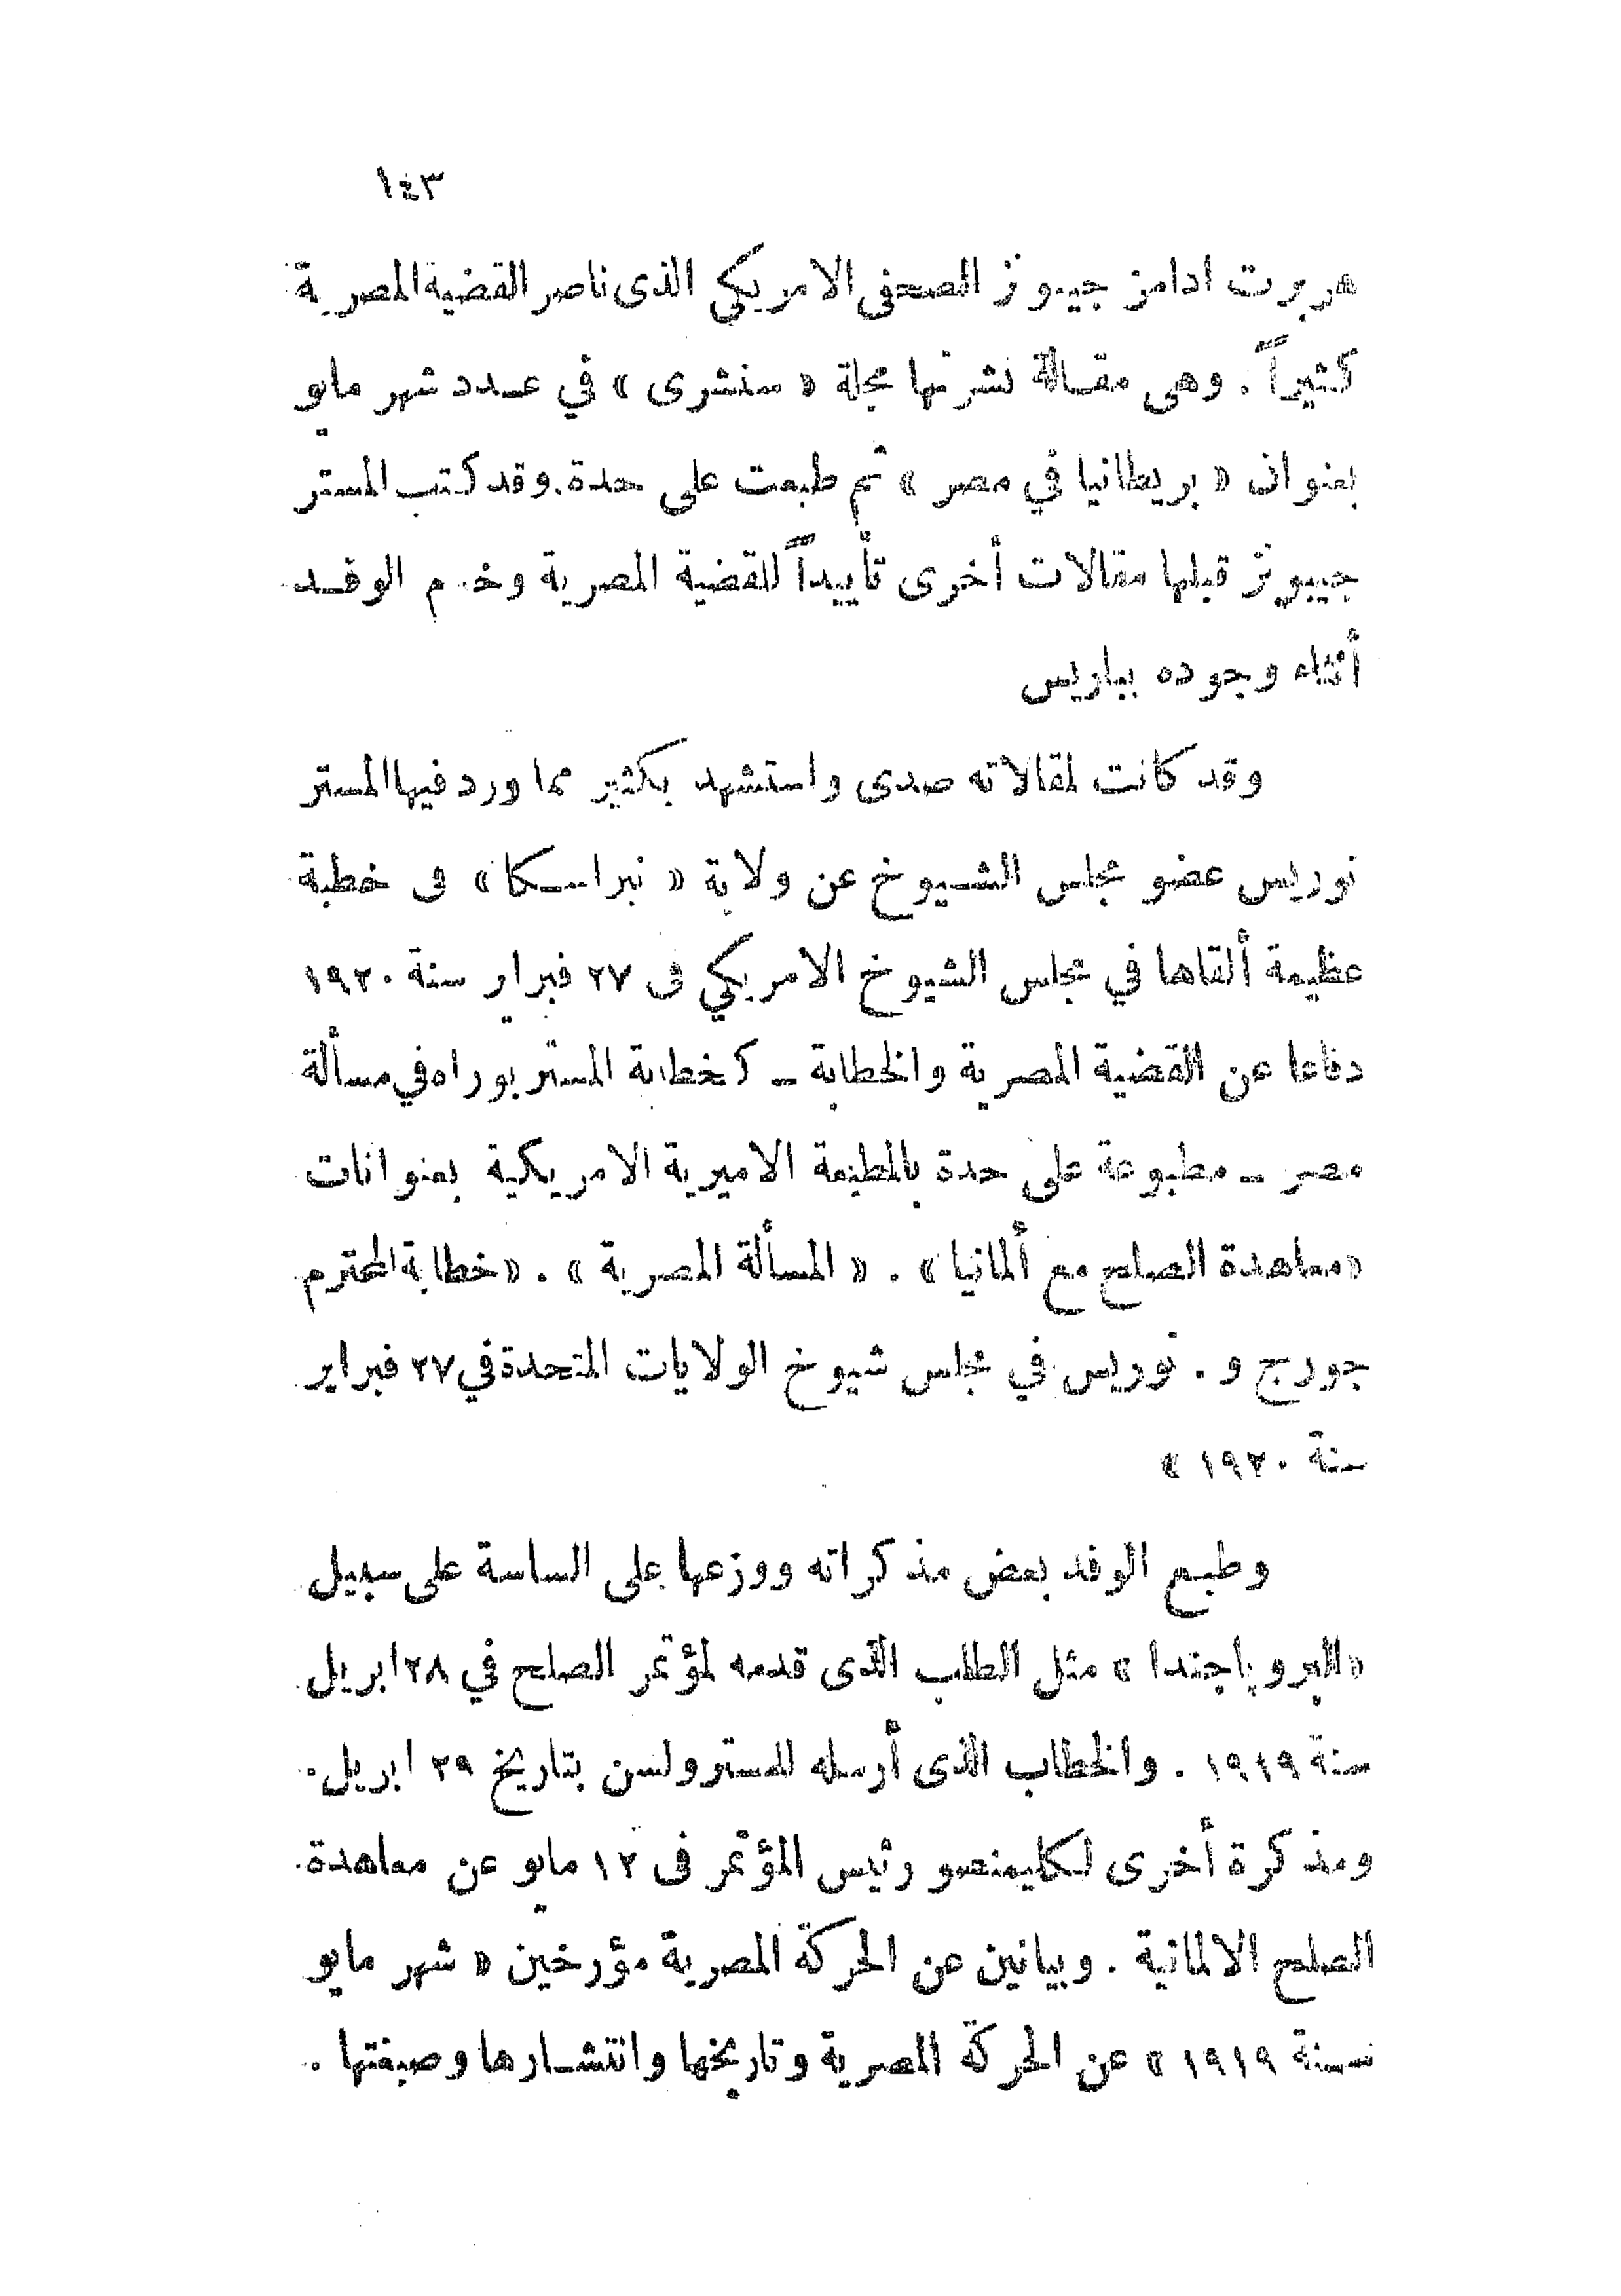 ١٤٣
هربرت ادامز جيبونز الصحفى الامريكي الذى ناصر القضية المصرية
كثيراً. وهى مقالة نشرتها مجلة « سنشرى » في عدد شهر مايو
بعنوان « بريطانيا في مصر » ثم طبعت على حدة. وقد كتب المستر
جيبونز قبلها مقالات أخرى تأييداً للقضية المصرية وخدم الوفد
أثناء وجوده بباريس
وقد كانت لمقالاته صدى واستشهد بكثير مما ورد فيها المستر
نوريس عضو مجلس الشيوخ عن ولاية « نبراسكا » فى خطبة
عظيمة ألقاها في مجلس الشيوخ الامريكي فى ٢٧ فبراير سنة ١٩٢٠
دفاعا عن القضية المصرية والخطابة ــ كخطابة المستر بوراه في مسألة
مصر ــ مطبوعة على حدة بالمطبعة الاميرية الامريكية بعنوانات
« معاهدة الصلح مع ألمانيا » . « المسألة المصرية » . « خطابة المحترم
جورج و . نوريس في مجلس شيوخ الولايات المتحدة في ٢٧ فبراير
سنة ١٩٢٠ »
وطبع الوفد بعض مذكراته ووزعها على الساسة على سبيل
« البروباجندا » مثل الطلب الذى قدمه لمؤتمر الصلح في ٢٨ ابريل
سنة ١٩١٩ . والخطاب الذى أرسله للمستر ولسن بتاريخ ٢٩ ابريل.
ومذكرة أخرى لكليمنصو رئيس المؤتمر فى ١٢ مايو عن معاهدة
الصلح الالمانية . وبيانين عن الحركة المصرية مؤرخين « شهر مايو
سنة ١٩١٩ » عن الحركة المصرية وتاريخها وانتشارها وصبغتها .